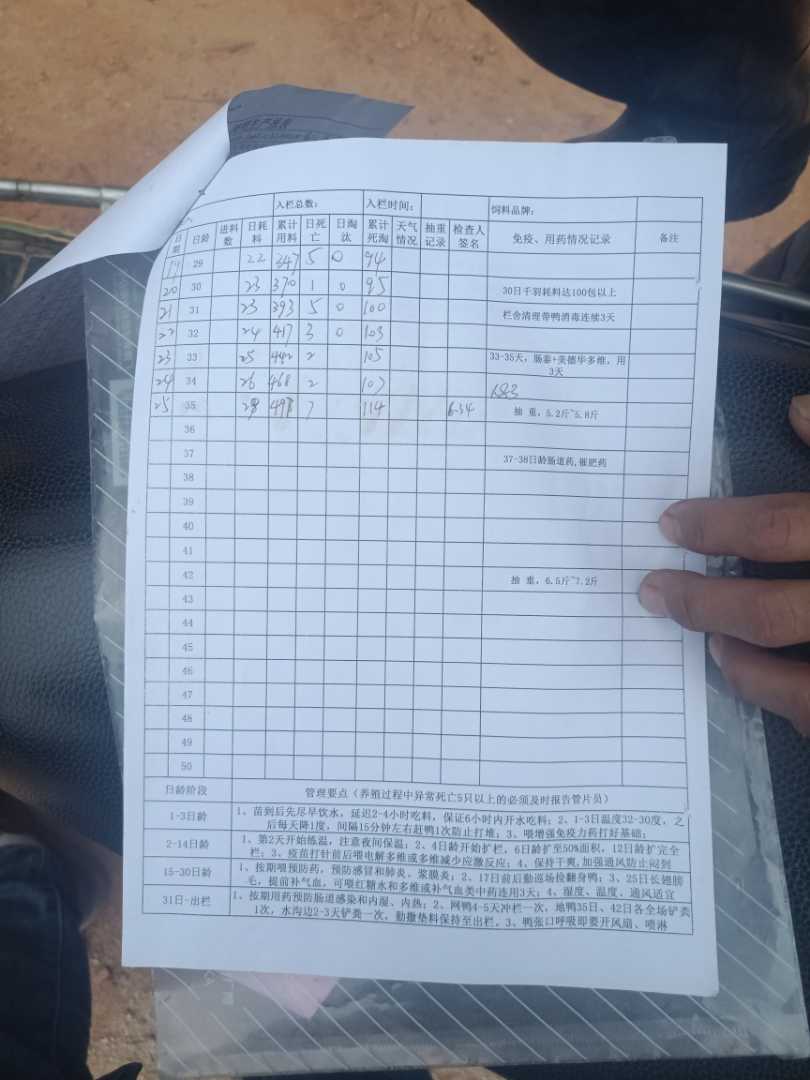 入栏总数： 入栏时间： 饲料品牌：
日期 日龄 进料数 日耗料 累计用料 日死亡 日淘汰 累计死淘 天气情况 抽重记录 检查人签名 免疫、用药情况记录 备注
19 29 22 347 5 0 94
20 30 23 370 1 0 95 30日千羽耗料达100包以上
21 31 23 393 5 0 100 栏舍清理带鸭消毒连续3天
22 32 24 417 3 0 103
23 33 25 442 2 105 33-35天，肠泰+美德华多维，用3天
24 34 26 468 2 107
25 35 28 7 114 抽 重，5.2斤~5.8斤
36
37 37-38日龄肠道药,催肥药
38
39
40
41
42 抽 重，6.5斤~7.2斤
43
44
45
46
47
48
49
50
日龄阶段 管理要点（养殖过程中异常死亡5只以上的必须及时报告管片员）
1-3日龄 1、苗到后先尽早饮水，延迟2-4小时吃料，保证6小时内开水吃料；2、1-3日温度32-30度，之
后每天降1度，间隔15分钟左右赶鸭1次防止打堆；3、喂增强免疫力药打好基础；
2-14日龄 1、第2天开始练温，注意夜间保温；2、4日龄开始扩栏，6日龄扩至50%面积，12日龄扩完全
栏；3、疫苗打针前后喂电解多维或多维减少应激反应；4、保持干爽,加强通风防止闷到
15-30日龄 1、按期喂预防药，预防感冒和肺炎、浆膜炎；2、17日前后勤巡场检翻身鸭；3、25日长翅膀
毛，提前补气血，可喂红糖水和多维或补气血类中药连用3天；4、湿度、温度、通风适宜
31日-出栏 1、按期用药预防肠道感染和内湿、内热；2、网鸭4-5天冲栏一次，地鸭35日、42日各全场铲粪
1次，水沟边2-3天铲粪一次，勤撒垫料保持至出栏。3、鸭张口呼吸即要开风扇、喷淋